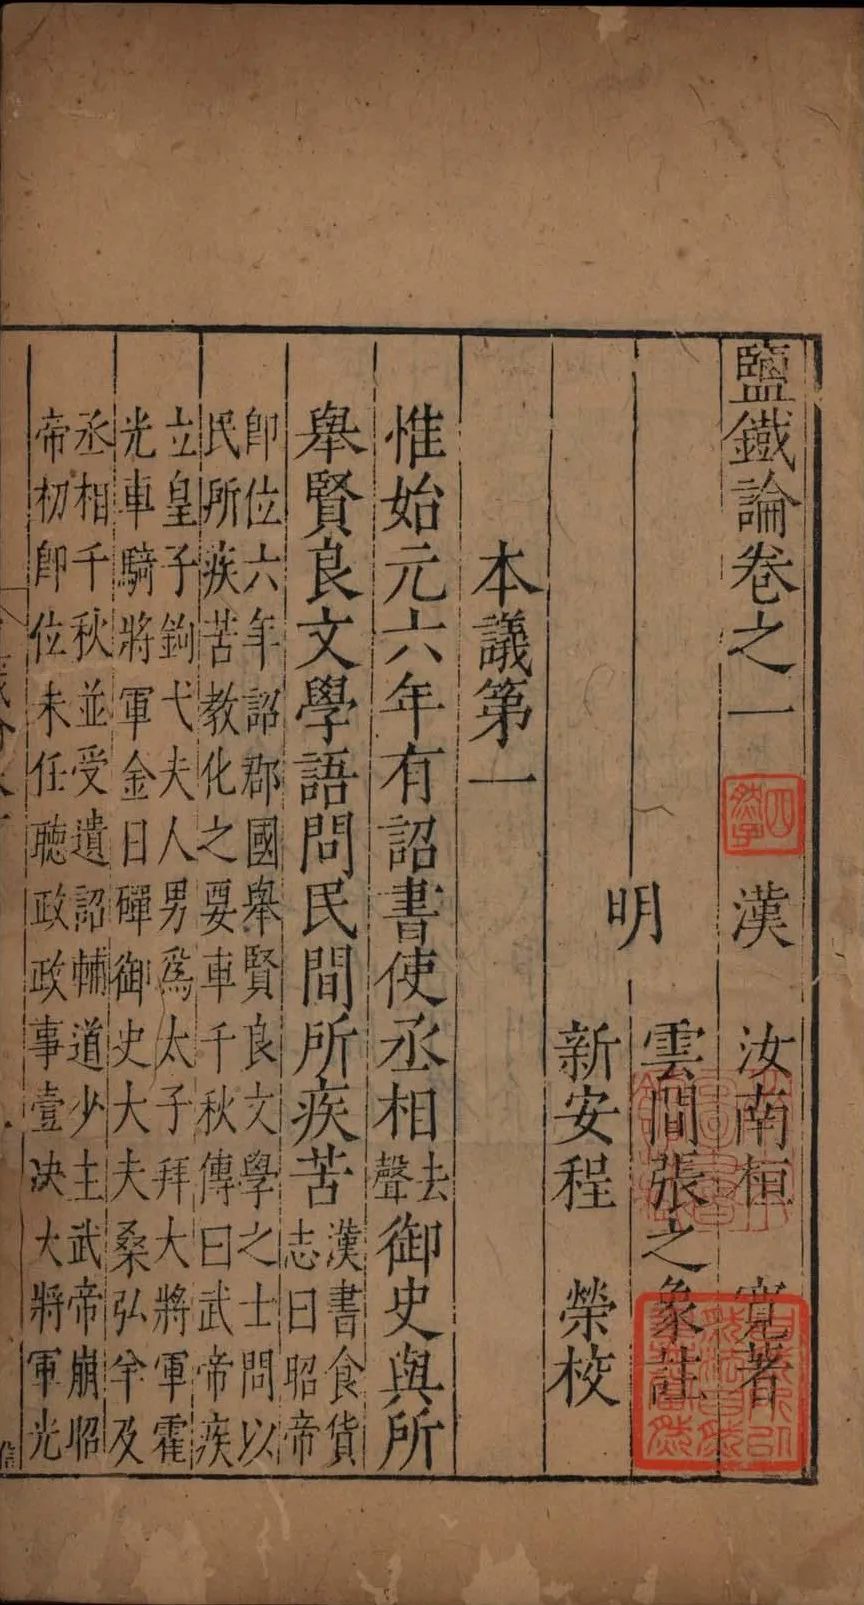 鹽鐵論卷之一
漢　汝南桓　寬著
明　雲間張之象註
新安程　榮校
本議第一
惟始元六年有詔書使丞相去聲御史與所
舉賢良文學語問民間所疾苦漢書食貨志曰昭帝
即位六年詔郡國舉賢良文學之士問以
民所疾苦教化之要車千秋傳曰武帝疾
立皇子鉤弋夫人男爲太子拜大將軍霍
光車騎將軍金日磾御史大夫桑弘羊及
丞相千秋並受遺詔輔道少主武帝崩昭
帝初即位未任聽政政事壹决大將軍光